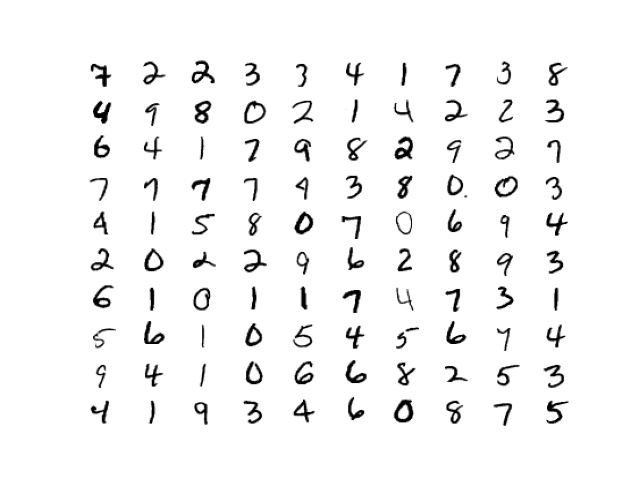 7 2 2 3 3 4 1 7 3 8
4 9 8 0 2 1 4 2 2 3
6 4 1 7 9 8 2 9 2 7
7 7 7 7 9 3 8 0 0 3
4 1 5 8 0 7 0 6 9 4
2 0 2 2 9 6 2 8 9 3
6 1 0 1 1 7 4 7 3 1
5 6 1 0 5 4 5 6 7 4
9 4 1 0 6 6 8 2 5 3
4 1 9 3 4 6 0 8 7 5